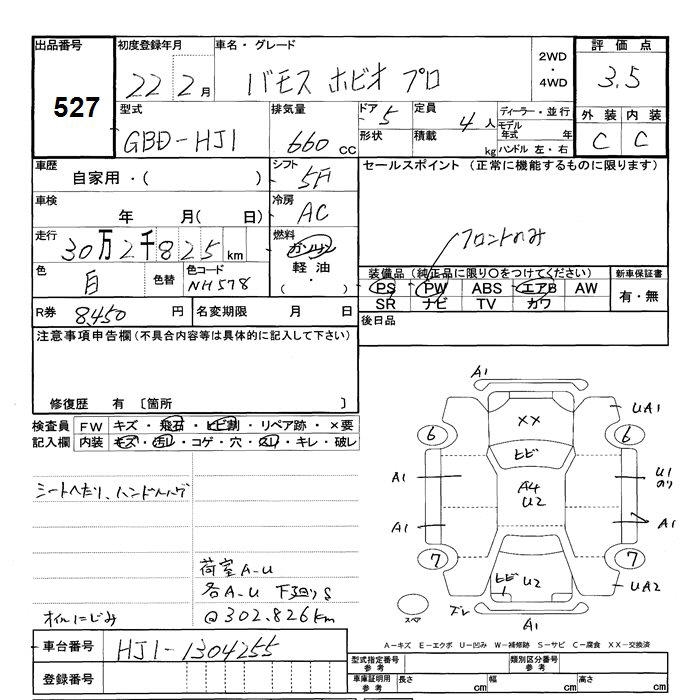 出品番号
527
初度登録年月
22年 2月
車名・グレード
バモス ホビオ プロ
2WD
・
4WD
評価点
3.5
外装 内装
C C
型式
GBD-HJ1
排気量
660 cc
ドア 5
形状
定員 4人
積載 kg
ディーラー・並行
モデル年式 年
ハンドル 左・右
車歴
自家用・( )
シフト
5F
セールスポイント (正常に機能するものに限ります)
フロントのみ
車検
年 月( 日)
冷房
AC
走行
30万2千825 km
燃料
ガソリン
軽油
・( )
色
白
色替
色コード
NH578
装備品 (純正品に限り○をつけてください)
PS PW ABS エアB AW
SR ナビ TV カワ
新車保証書
有・無
R券 8,450 円
名変期限 月 日
後日品
注意事項申告欄 (不具合内容等は具体的に記入して下さい)
修復歴 有 〔箇所 〕
検査員
記入欄
FW キズ・飛石・ヒビ割・リペア跡・×要
内装 キズ・汚れ・コゲ・穴・スレ・キレ・破レ
シートへたり、ハンドルハゲ
荷室A-U
各A-U 下廻りS
オイルにじみ
@302.826km
A1
XX
UA1
6
6
ヒビ
A1
A4
U2
U1
のり
A1
A1
7
7
ヒビ U2
UA2
スペア
ズレ
A1
A－キズ E－エクボ U－凹み W－補修跡 S－サビ C－腐食 XX－交換済
車台番号 HJ1-1304255
登録番号
型式指定番号
参考
類別区分番号
参考
車庫証明用
参考
長さ cm
幅 cm
高さ cm